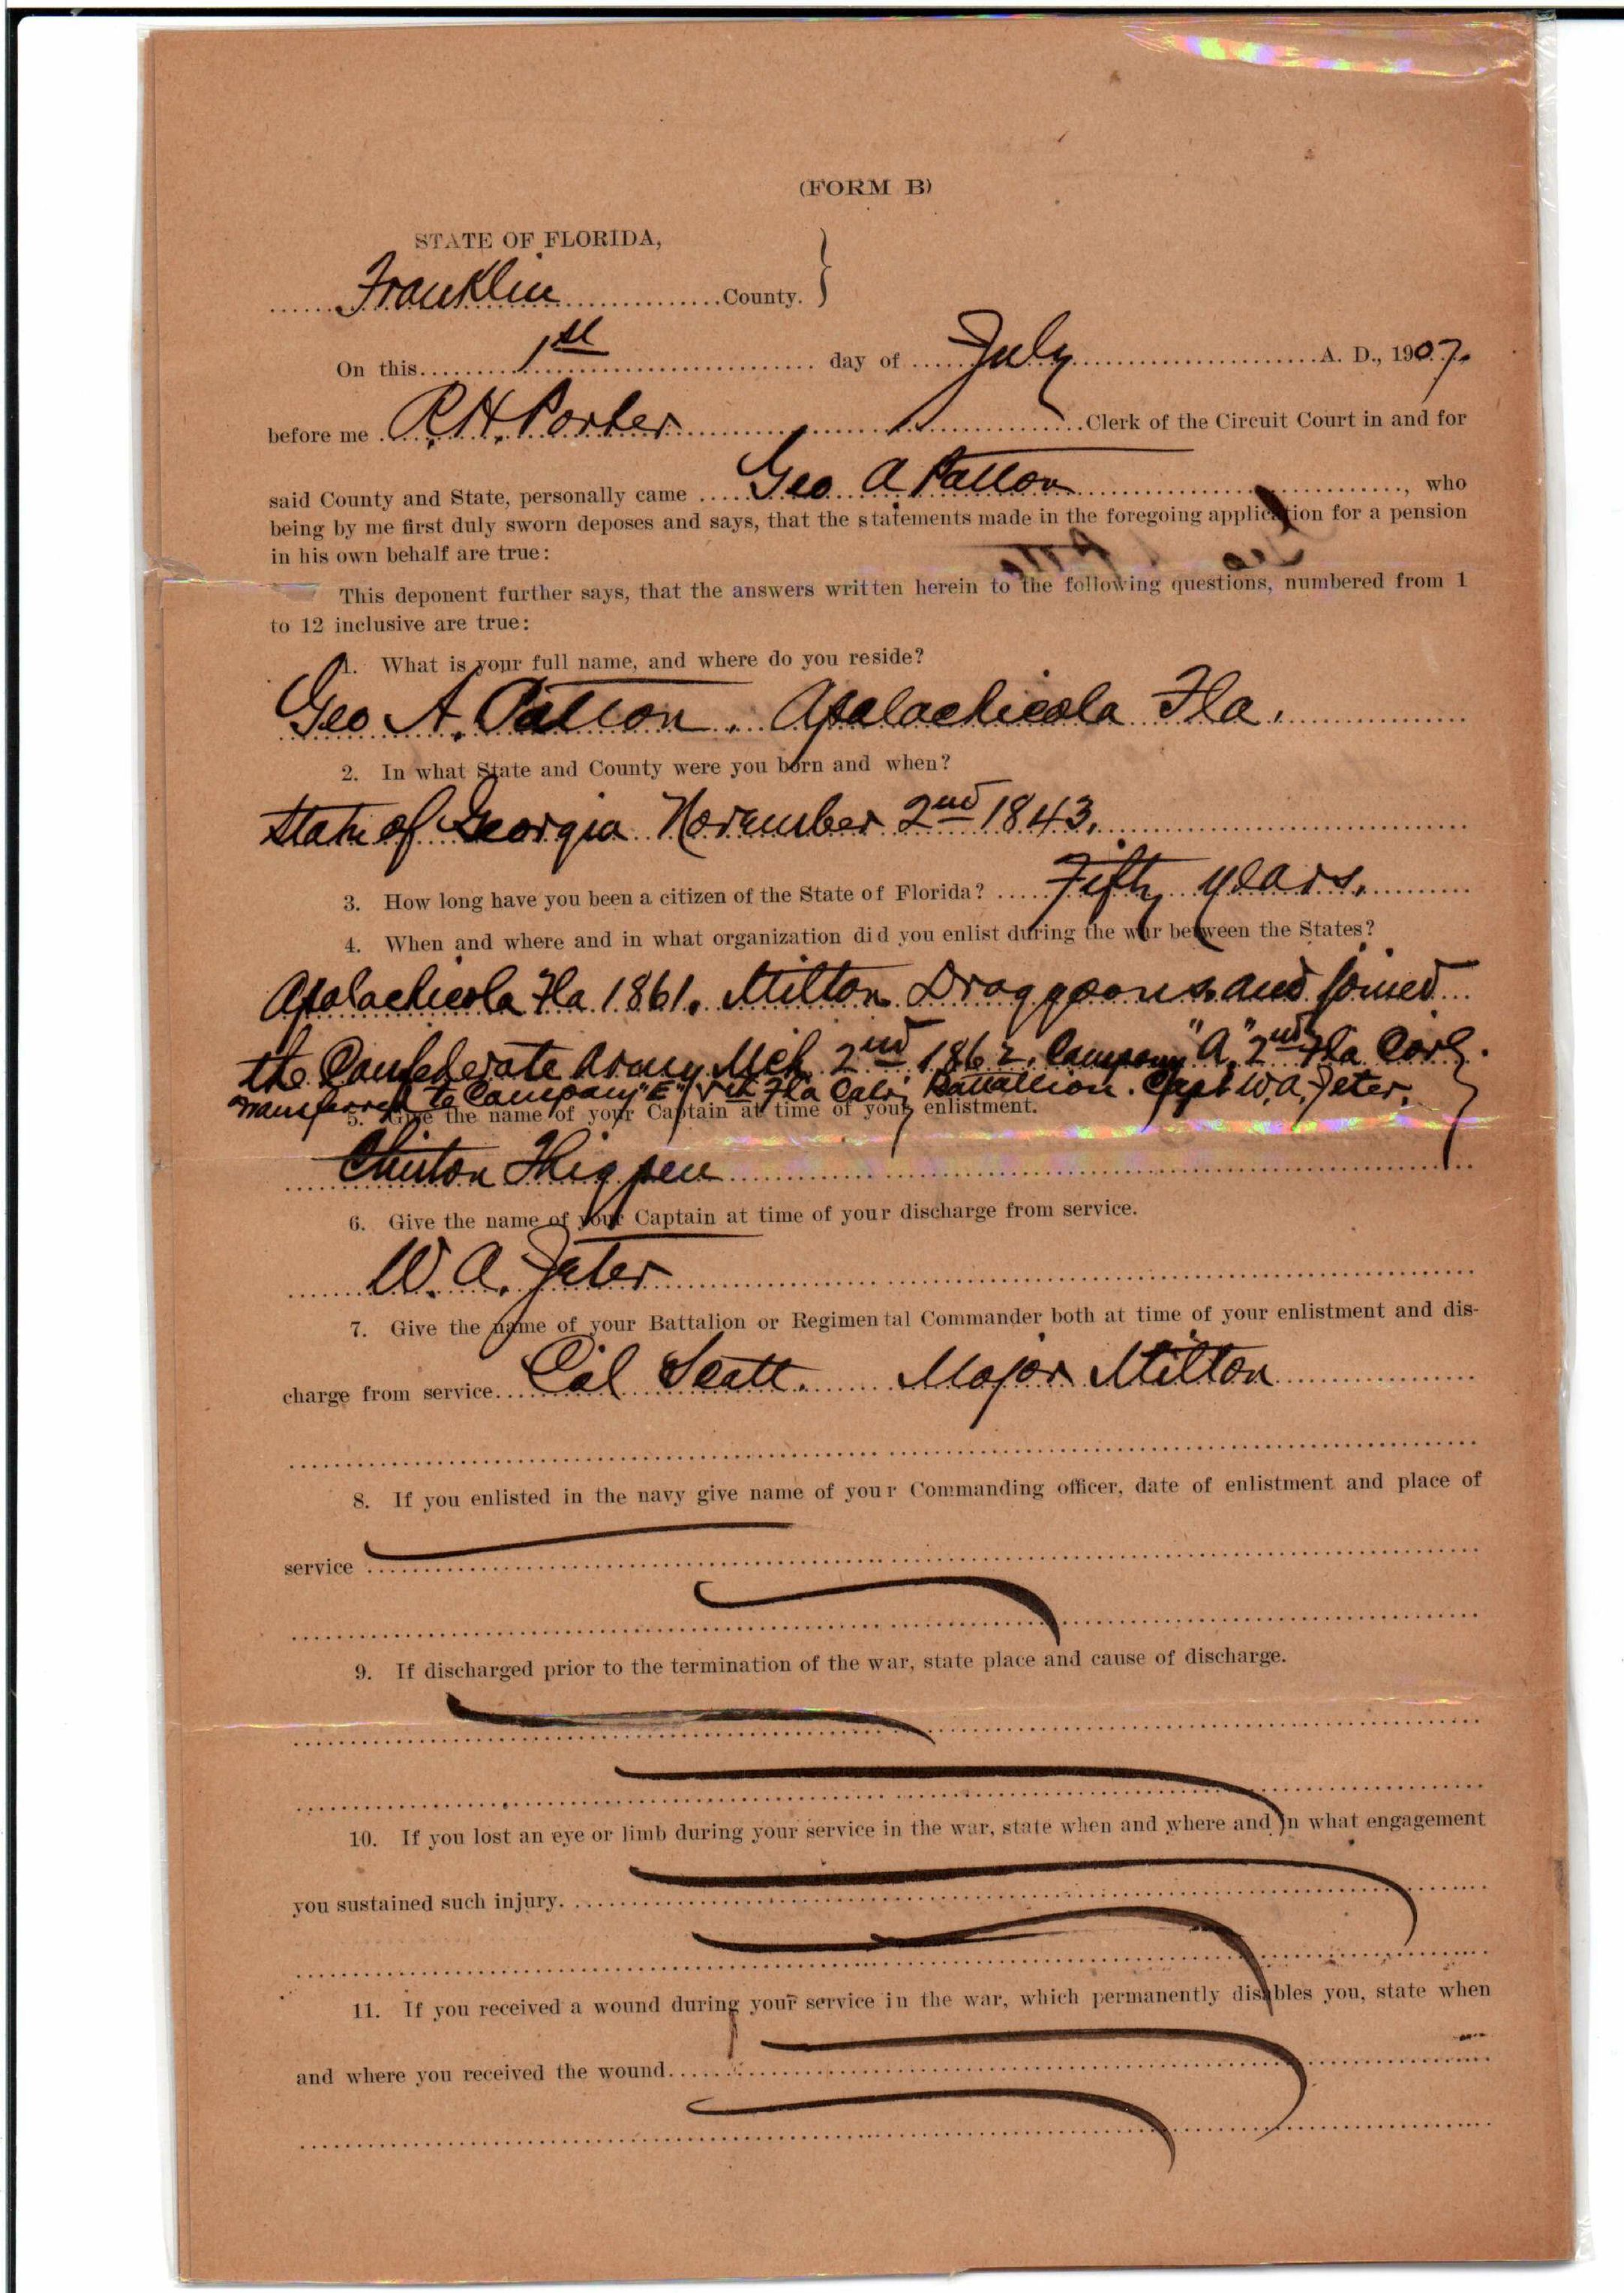 (FORM B)
STATE OF FLORIDA,
Franklin County.
On this 1st day of July A. D., 1907.
before me R. H. Porter Clerk of the Circuit Court in and for
said County and State, personally came Geo A Patton, who
being by me first duly sworn deposes and says, that the statements made in the foregoing application for a pension
in his own behalf are true:
This deponent further says, that the answers written herein to the following questions, numbered from 1
to 12 inclusive are true:
1. What is your full name, and where do you reside?
Geo A. Patton. Apalachicola Fla.
2. In what State and County were you born and when?
State of Georgia November 2nd 1843.
3. How long have you been a citizen of the State of Florida? Fifty years.
4. When and where and in what organization did you enlist during the war between the States?
Apalachicola Fla 1861. Milton Draggoons and joined
the Confederate Army Mch 2nd 1862, Company "A" 2nd Fla
transferred to Company "E" Fla Batallion. Capt W. A. Jeter.
5. Give the name of your Captain at time of your enlistment.
Clinton Thigpen
6. Give the name of your Captain at time of your discharge from service.
W. A. Jeter
7. Give the name of your Battalion or Regimental Commander both at time of your enlistment and dis-
charge from service. Col Scott. Major Milton
8. If you enlisted in the navy give name of your Commanding officer, date of enlistment and place of
service
9. If discharged prior to the termination of the war, state place and cause of discharge.
10. If you lost an eye or limb during your service in the war, state when and where and in what engagement
you sustained such injury.
11. If you received a wound during your service in the war, which permanently disables you, state when
and where you received the wound.